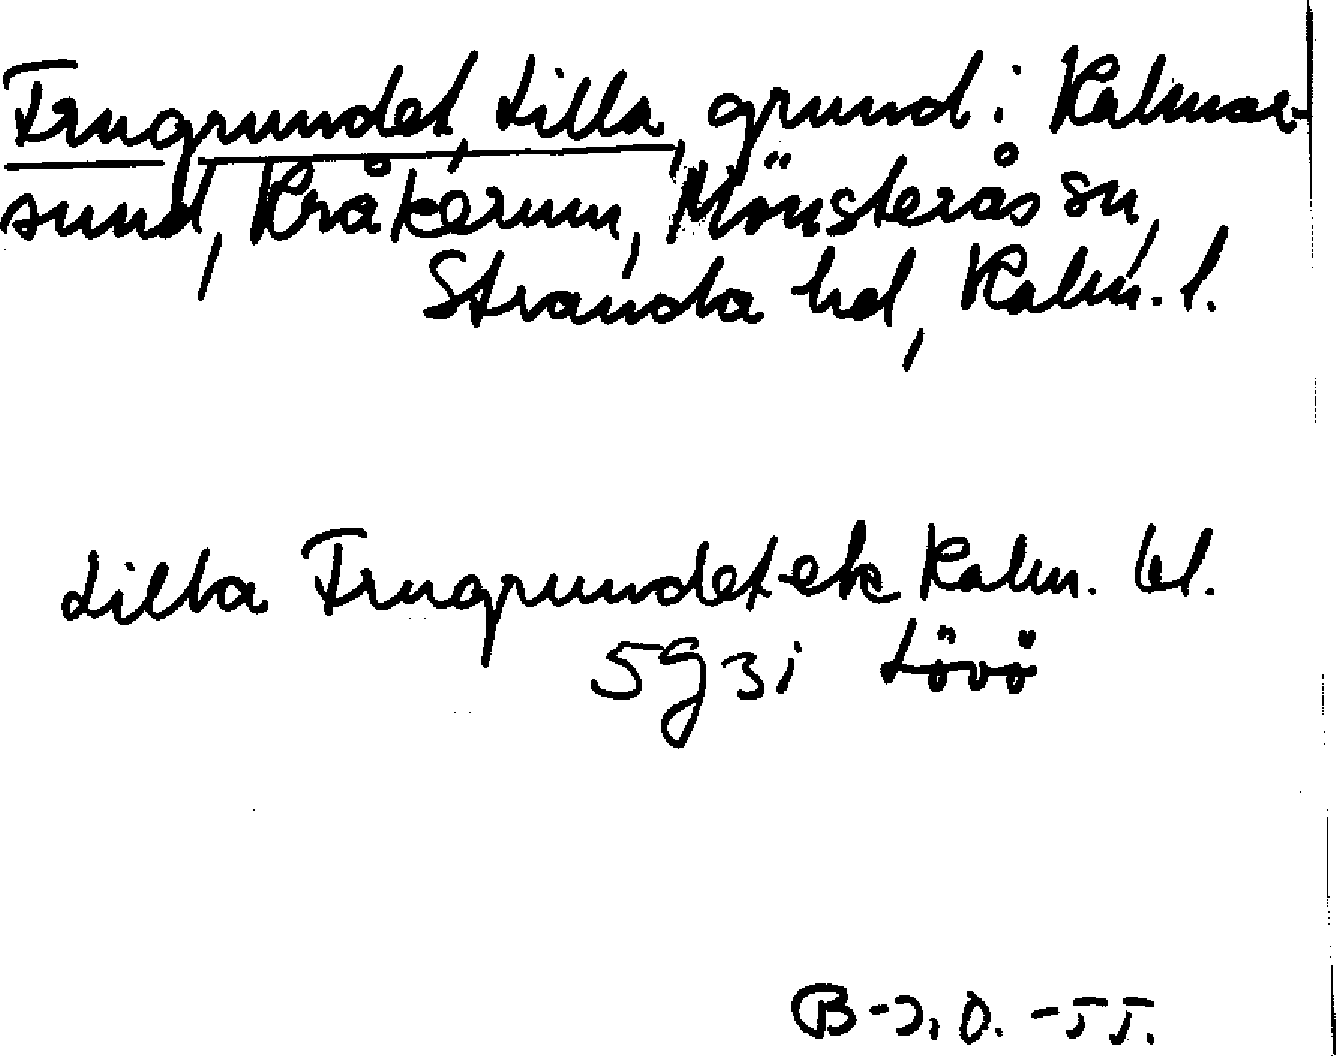 Frugrundet, Lilla, grund i Kalmar-
sund, Kråkerum, Mönsterås sn,
Stranda hd, Kalm. l.
Lilla Frugrundet ek Kalm. bl.
5g3i Lövö
B-J.O. -55.